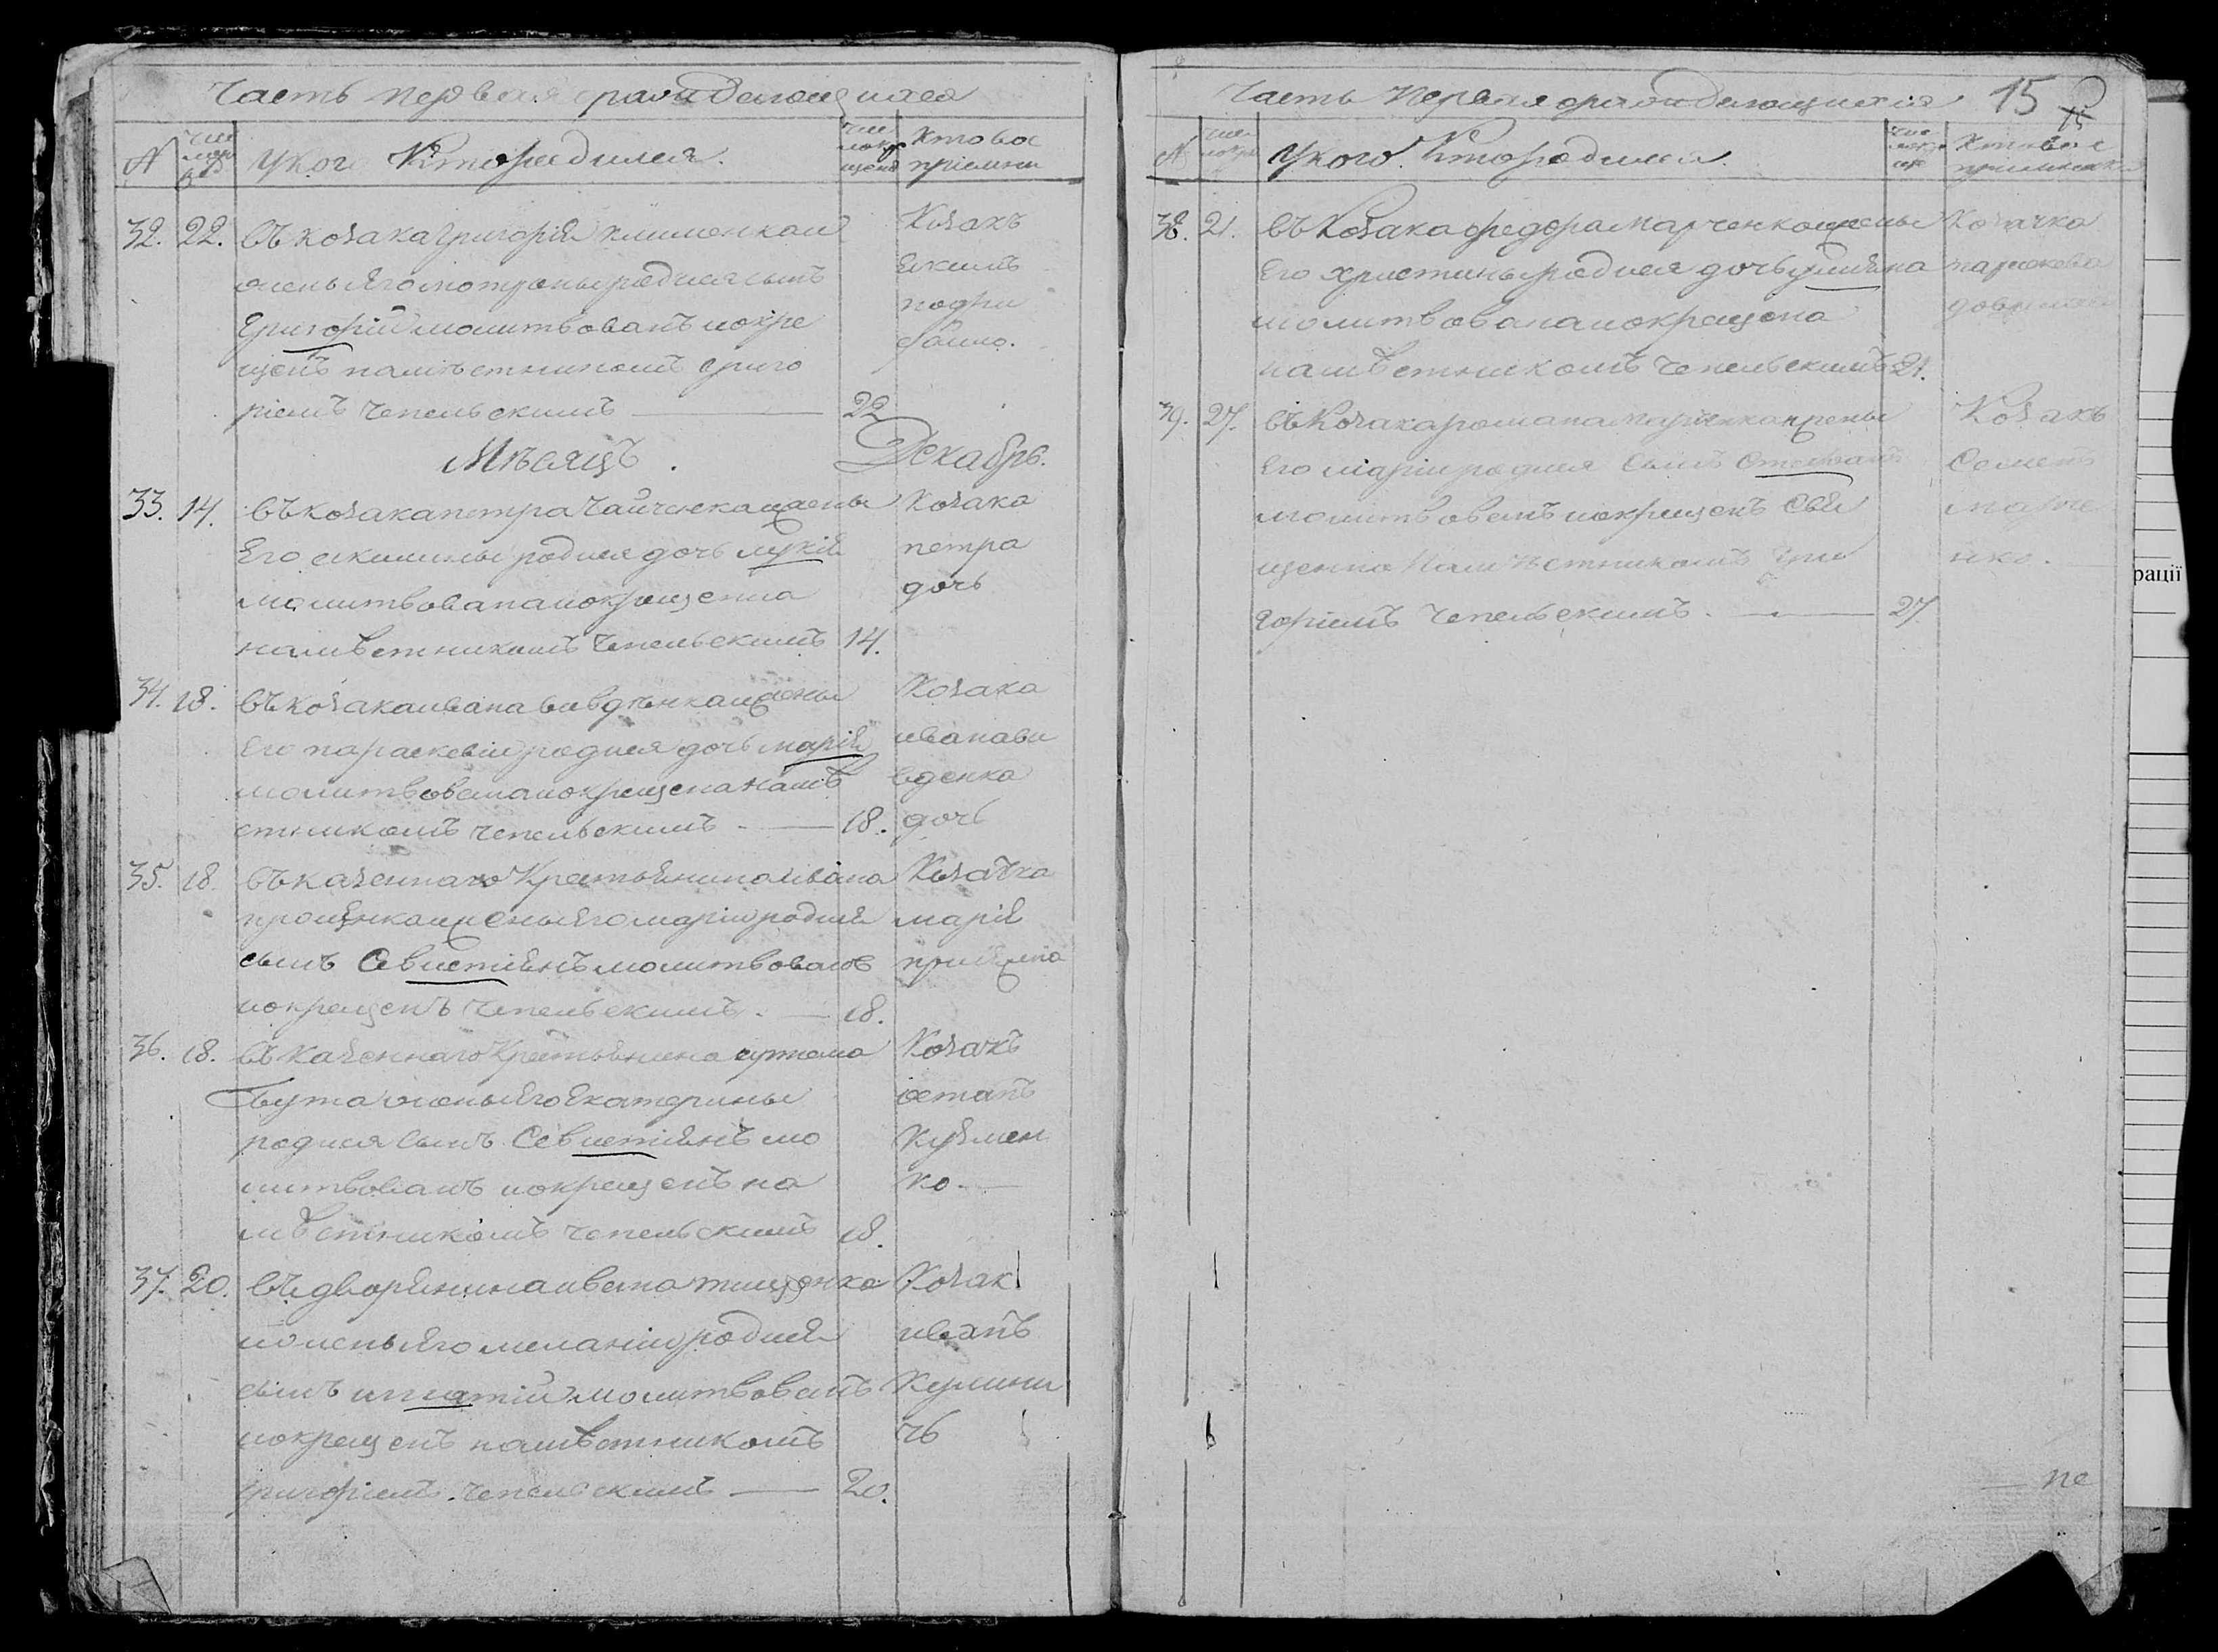 Часть первая ораждающихся
№
Чис
ло
рож
Укого Кторадился.
Чис
ло кр
щенія
Ктовос
пріемни
32. 22. Въ козака Григорія клименкаи
жены Его мотроны родился сынъ
Григорій молитвованъ иокре
щенъ намѣстникомъ Григо
ріемъ Чепельскимъ — 22
Козакъ
Екимъ
Мѣсяцъ. Декабрь.
33. 14. Въ козака петра Чайченкаижены
Его акилины родися дочь лукія
молитвована иокрещенна
намѣстникомъ Чепельскимъ 14.
Козака
петра
дочь
34. 18. Въ козака ивана вивденкаижены
Его параскевіи родися дочь марія
молитвована иокрещена намѣ
стникомъ Чепельскимъ — 18.
Козака
ивана ви
вденка
дочь
35. 18. Въ казеннаго Крестьянина ивана
проценкаижены Его маріи родися
сынъ Севистіянъ молитвованъ
иокрещенъ Чепельскимъ. — 18.
Козачка
марія
36. 18. Въ Казеннаго Крестьянина артема
жены Его Екатерины
родися сынъ Севистіянъ мо
литвованъ иокрещенъ на
мѣстникомъ Чепельскимъ 18.
Козакъ
іостапъ
Кузмен
ко.—
37. 20. Въ дворянина ивана тищенка
ижены Его меланіи родися
сынъ игнатій молитвованъ
иокрещенъ намѣстникомъ
григоріемъ Чепельскимъ — 20.
Козак
ивахнъ
Кулини
чь
Часть Первая ораждающихся 15
15
№
Чис
ло кр
Укого Кторадился.
Чис
ло кр
ще
Ктовос
пріемники
38. 21. Въ Козака федора марченкаижены
Его христины родися дочь уліяна
молитвована иокрещена
намѣстникомъ Чепельскимъ 21.
Козачка
параскева
39. 27. Въ Козака романа марченкаижены
Его маріи родися сынъ Стефанъ
молитвованъ иокрещенъ Свя
щенно Намѣстникомъ Гри
горіемъ Чепельскимъ. — 27
Козакъ
Семенъ
марче
нко.
— пе
рації